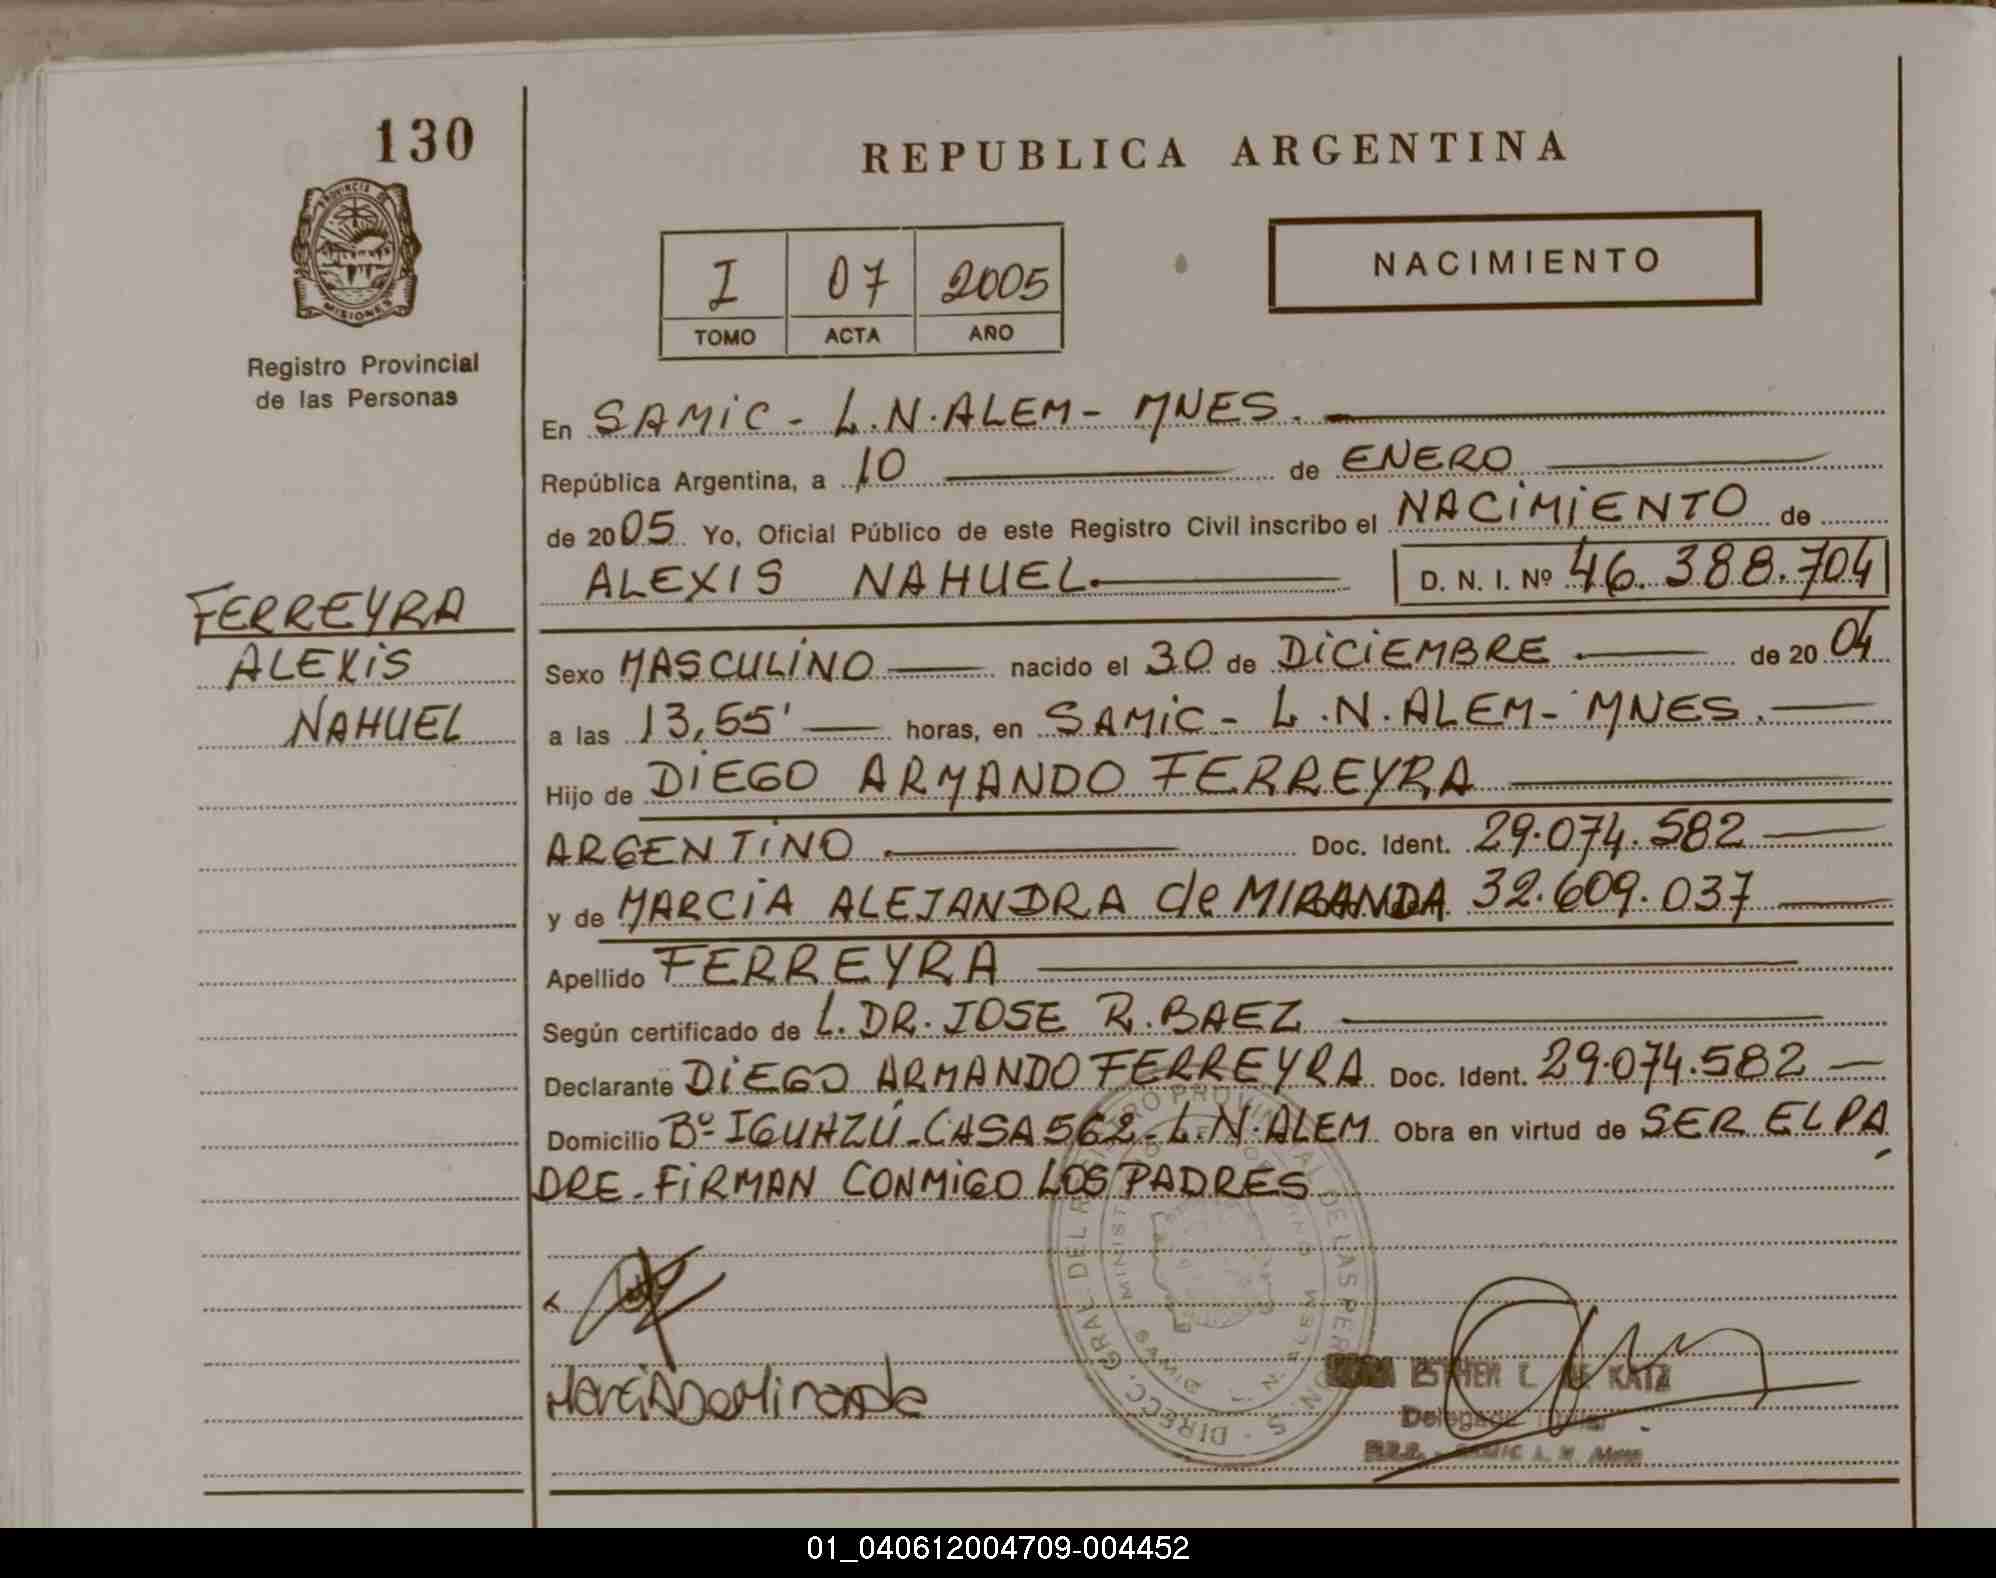 130
REPUBLICA ARGENTINA
PROVINCIA DE
MISIONES
Registro Provincial
de las Personas
I 07 2005
TOMO ACTA AÑO
NACIMIENTO
En SAMIC - L.N.ALEM - MNES.
República Argentina, a 10 de ENERO
de 2005 Yo, Oficial Público de este Registro Civil inscribo el NACIMIENTO de
ALEXIS NAHUEL D. N. I. Nº 46.388.704
FERREYRA
ALEXIS
NAHUEL
Sexo MASCULINO nacido el 30 de DICIEMBRE de 2004
a las 13,55' horas, en SAMIC - L.N.ALEM - MNES.
Hijo de DIEGO ARMANDO FERREYRA
ARGENTINO Doc. Ident. 29.074.582
y de MARCIA ALEJANDRA de MIRANDA 32.609.037
Apellido FERREYRA
Según certificado de L. DR. JOSE R. BAEZ
Declarante DIEGO ARMANDO FERREYRA Doc. Ident. 29.074.582
Domicilio Bº IGUAZÚ - CASA 562 - L.N.ALEM Obra en virtud de SER EL PA
DRE - FIRMAN CONMIGO LOS PADRES
DIRECC. GRAL. DEL REGISTRO PROVINCIAL DE LAS PERSONAS
Marcia De Miranda
ESTHER L. DE KATZ
Delegada Titular
SAMIC L. N. Alem
01_040612004709-004452